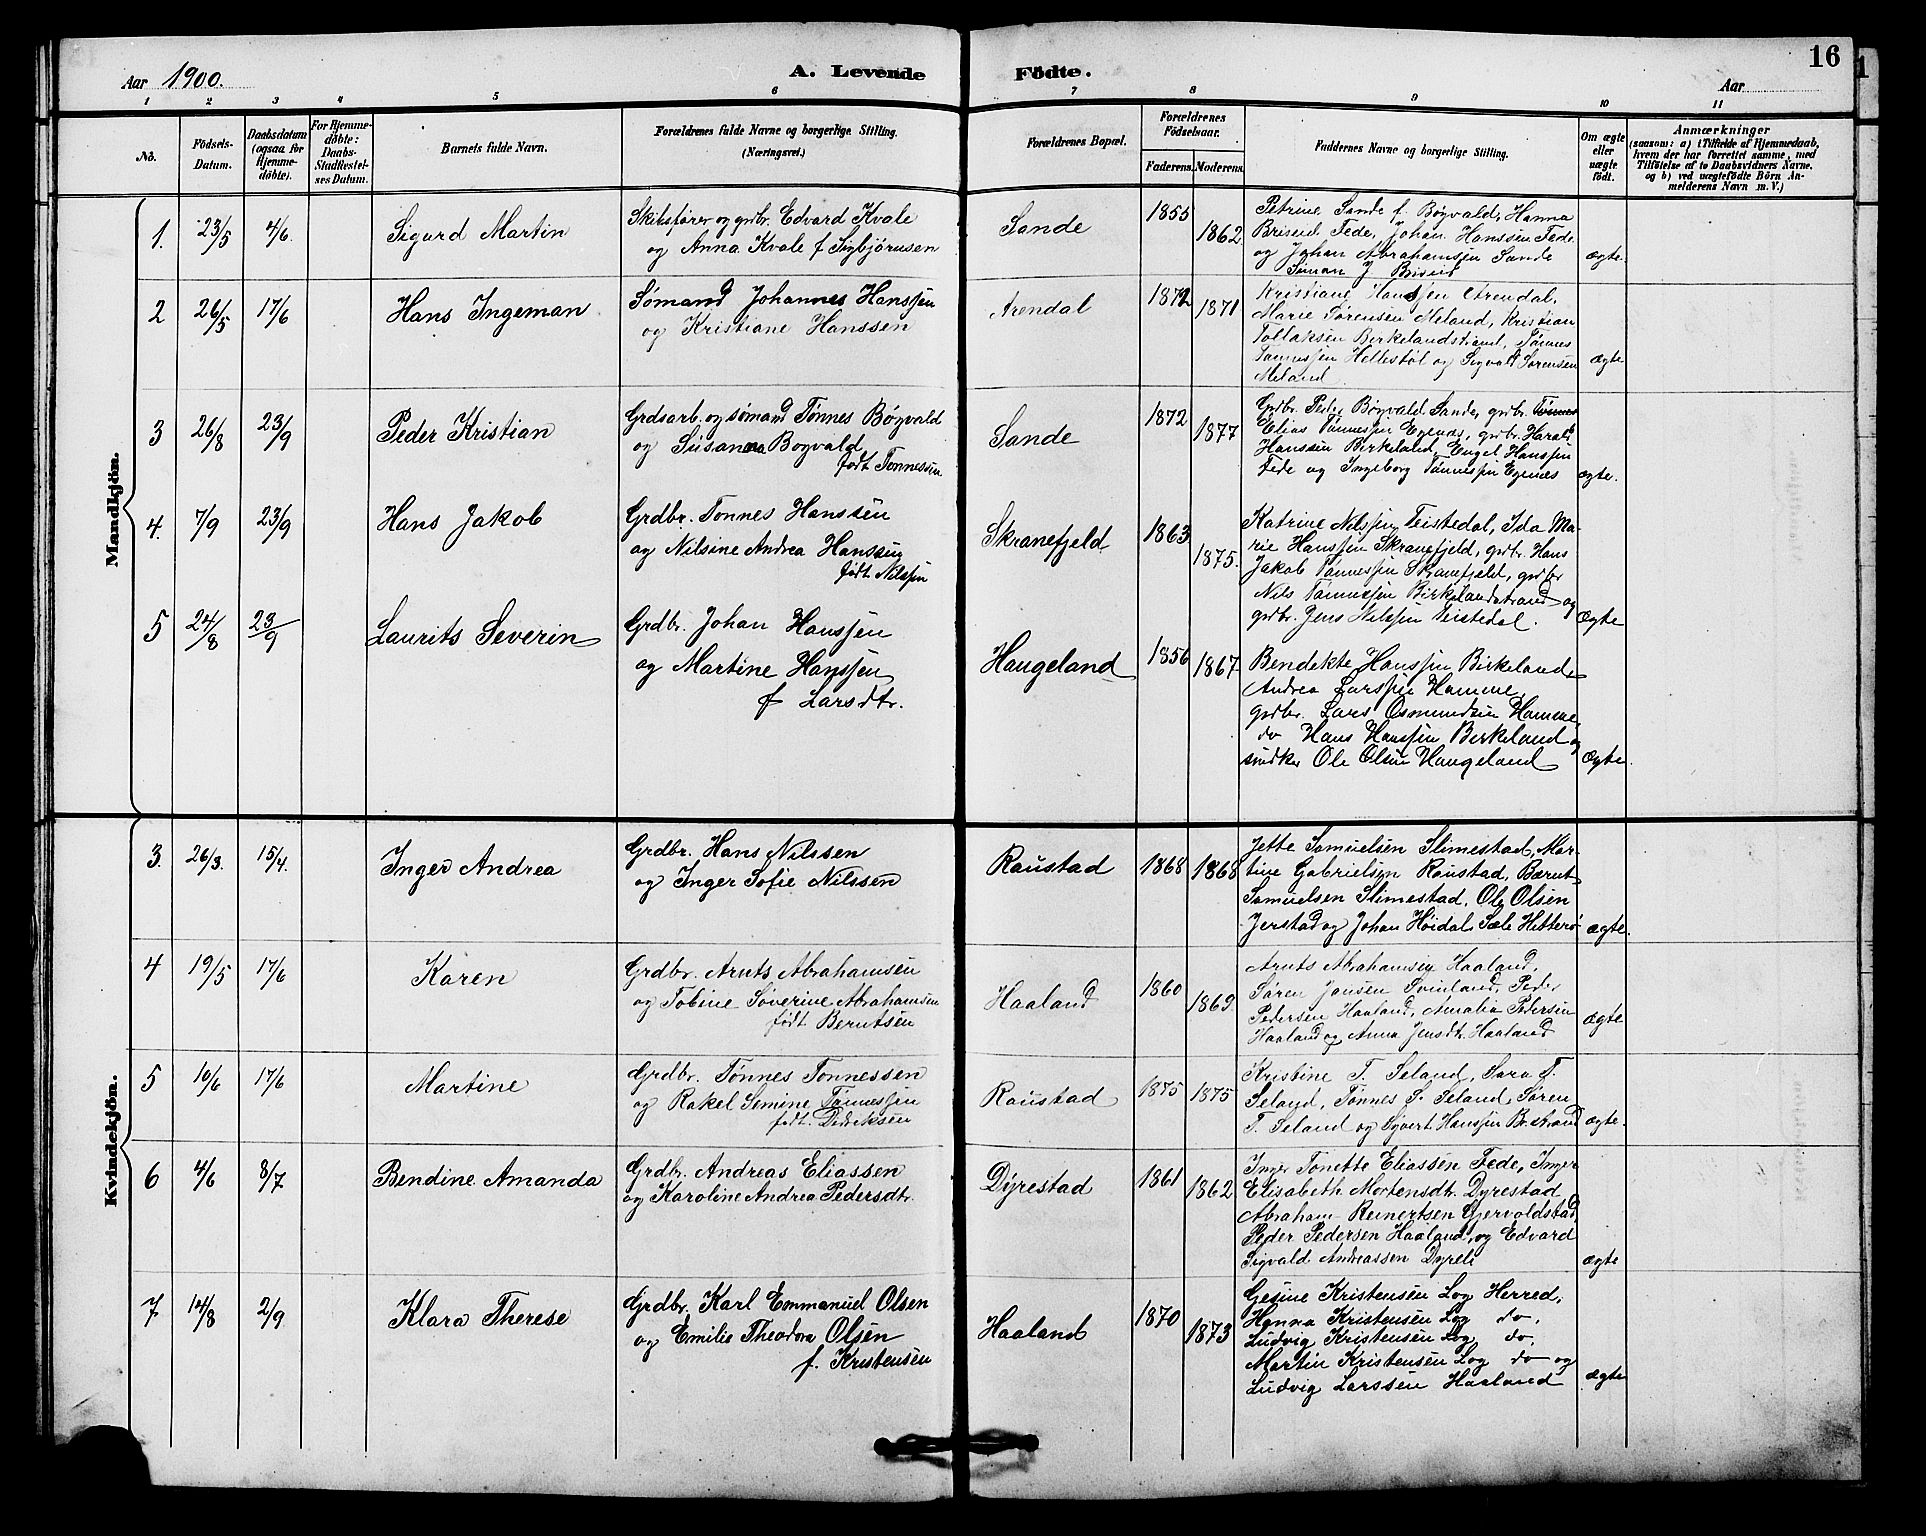 16
Aar 1900.
A. Levende Födte.
Aar
1 2 3 4 5 6 7 8 9 10 11
No.
Födsels-Datum.
Daabsdatum (ogsaa for Hjemme-döbte).
For Hjemme-döbte: Daabs-Stadfæstel-ses Datum.
Barnets fulde Navn.
Forældrenes fulde Navne og borgerlige Stilling. (Næringsvei.)
Forældrenes Bopæl.
Forældrenes Födselsaar.
Faderens. Moderens.
Faddernes Navne og borgerlige Stilling.
Om ægte eller uægte födt.
Anmærkninger
(saasom: a) i Tilfælde af Hjemmedaab, hvem der har forrettet samme, med Tilföielse af to Daabsvidners Navne, og b) ved uægtefödte Börn An-melderens Navn m. V.)
Mandkjön.
1. 23/5 4/6. Sigurd Martin
Skibsfører og grdbr. Edvard Kvale
og Anna Kvale f Sigbjörnsen
Sande 1855 1862.
Petrine Sande f. Bøgvald, Hanna
Briseid Fede, Johan Hanssen Fede
og Johan Abrahamsen Sande
Simon J Briseid
ægte.
2 26/5 17/6 Hans Ingeman
Sømand Johannes Hanssen
og Kristiane Hanssen
Arendal 1872 1871
Kristiane Hanssen Arendal,
Marie Sørensen Meland, Kristian
Tollaksen Birkelandstrand, Tønnes
Tønnessen Hellestøl og Sigvald Sørensen
Meland
ægte
3 26/8 23/9 Peder Kristian
Grdsarb. og sømand Tønnes Bøgvald
og Susanna Bogvald
født Tonnessen
Sande 1872 1877
Grdbr. Peder Bøgvald Sande, grdbr. Tønnes
Elias Tønnessen Egenæs, grdbr. Harald
Hanssen Birkeland, Engel Hanssen
Fede og Ingeborg Tønnessen Egenes
ægte.
4. 7/9 23/9 Hans Jakob
Grdbr. Tonnes Hanssen
og Nilsine Andrea Hanssen
født Nilssen
Skranefjeld 1863 1875.
Katrine Nilssen Teistedal, Ida Ma-
rie Hanssen Skranefjeld, grdbr. Hans
Jakob Tønnessen Skranefjeld, grdbr
Nils Tønnessen Birkelandstrand og
grdbr. Jens Nilssen Teistedal.
Ægte
5 24/8 23/9 Laurits Severin
Grdbr. Johan Hanssen
og Martine Hanssen
f Larsdtr.
Haugeland 1856 1867.
Bendekte Hanssen Birkeland,
Andrea Larssen Hamme,
grdbr. Lars Osmundsen Hamme,
do Hans Hanssen Birkeland og
snedker Ole Olsen Haugeland
Ægte.
Kvindekjön.
3. 26/3. 15/4. Inger Andrea
Grdbr. Hans Nilssen
og Inger Sofie Nilssen
Raustad 1868 1868
Jette Samuelsen Slimestad, Mar-
tine Gabrielsen Raustad, Bærnt
Samuelsen Slimestad, Ole Olsen
Jerstad og Johan Høidal, Sæle Hitterø
ægte.
4 19/5 17/6 Karen
Grdbr. Arnts Abrahamsen
og Tobine Søverine Abrahamsen
født Berntsen
Haaland 1860 1869.
Arnts Abrahamsen Haaland,
Søren Jonsen Svinland, Peder
Pedersen Haaland, Amalia Pedersen
Haaland og Anna Jensdtr. Haaland
ægte
5 10/6 17/6 Martine
Grdbr. Tønnes Tonnessen
og Rakel Semine Tønnessen
født. Didriksen
Raustad 1875 1875
Kristine T. Seland, Sara T.
Seland, Tønnes T. Seland, Søren
T. Seland og Syvert Hanssen
ægte.
6 4/6 8/7 Bendine Amanda
Grdbr. Andreas Eliassen
og Karoline Andrea Pedersdtr.
Dyrestad 1861 1862
Inger Tonette Eliassen Fede, Inger
Elisabeth Mortensdtr. Dyrestad
Abraham Reinertsen Gjervoldstad,
Peder Pedersen Haaland, og Edvard
Sigvald Andreassen Dyreli
ægte
7 14/8 2/9 Klara Therese
Grdbr. Karl Emmanuel Olsen
og Emilie Theodora Olsen
f. Kristensen
Haaland 1870 1873
Gesine Kristensen Log Herred,
Hanna Kristensen Log do,
Ludvig Kristensen Log do,
Martin Kristensen Log do og
Ludvig Larssen Haaland
ægte